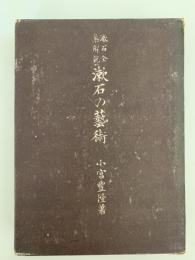 漱石全
集解説
漱石の藝術
小宮豐隆著